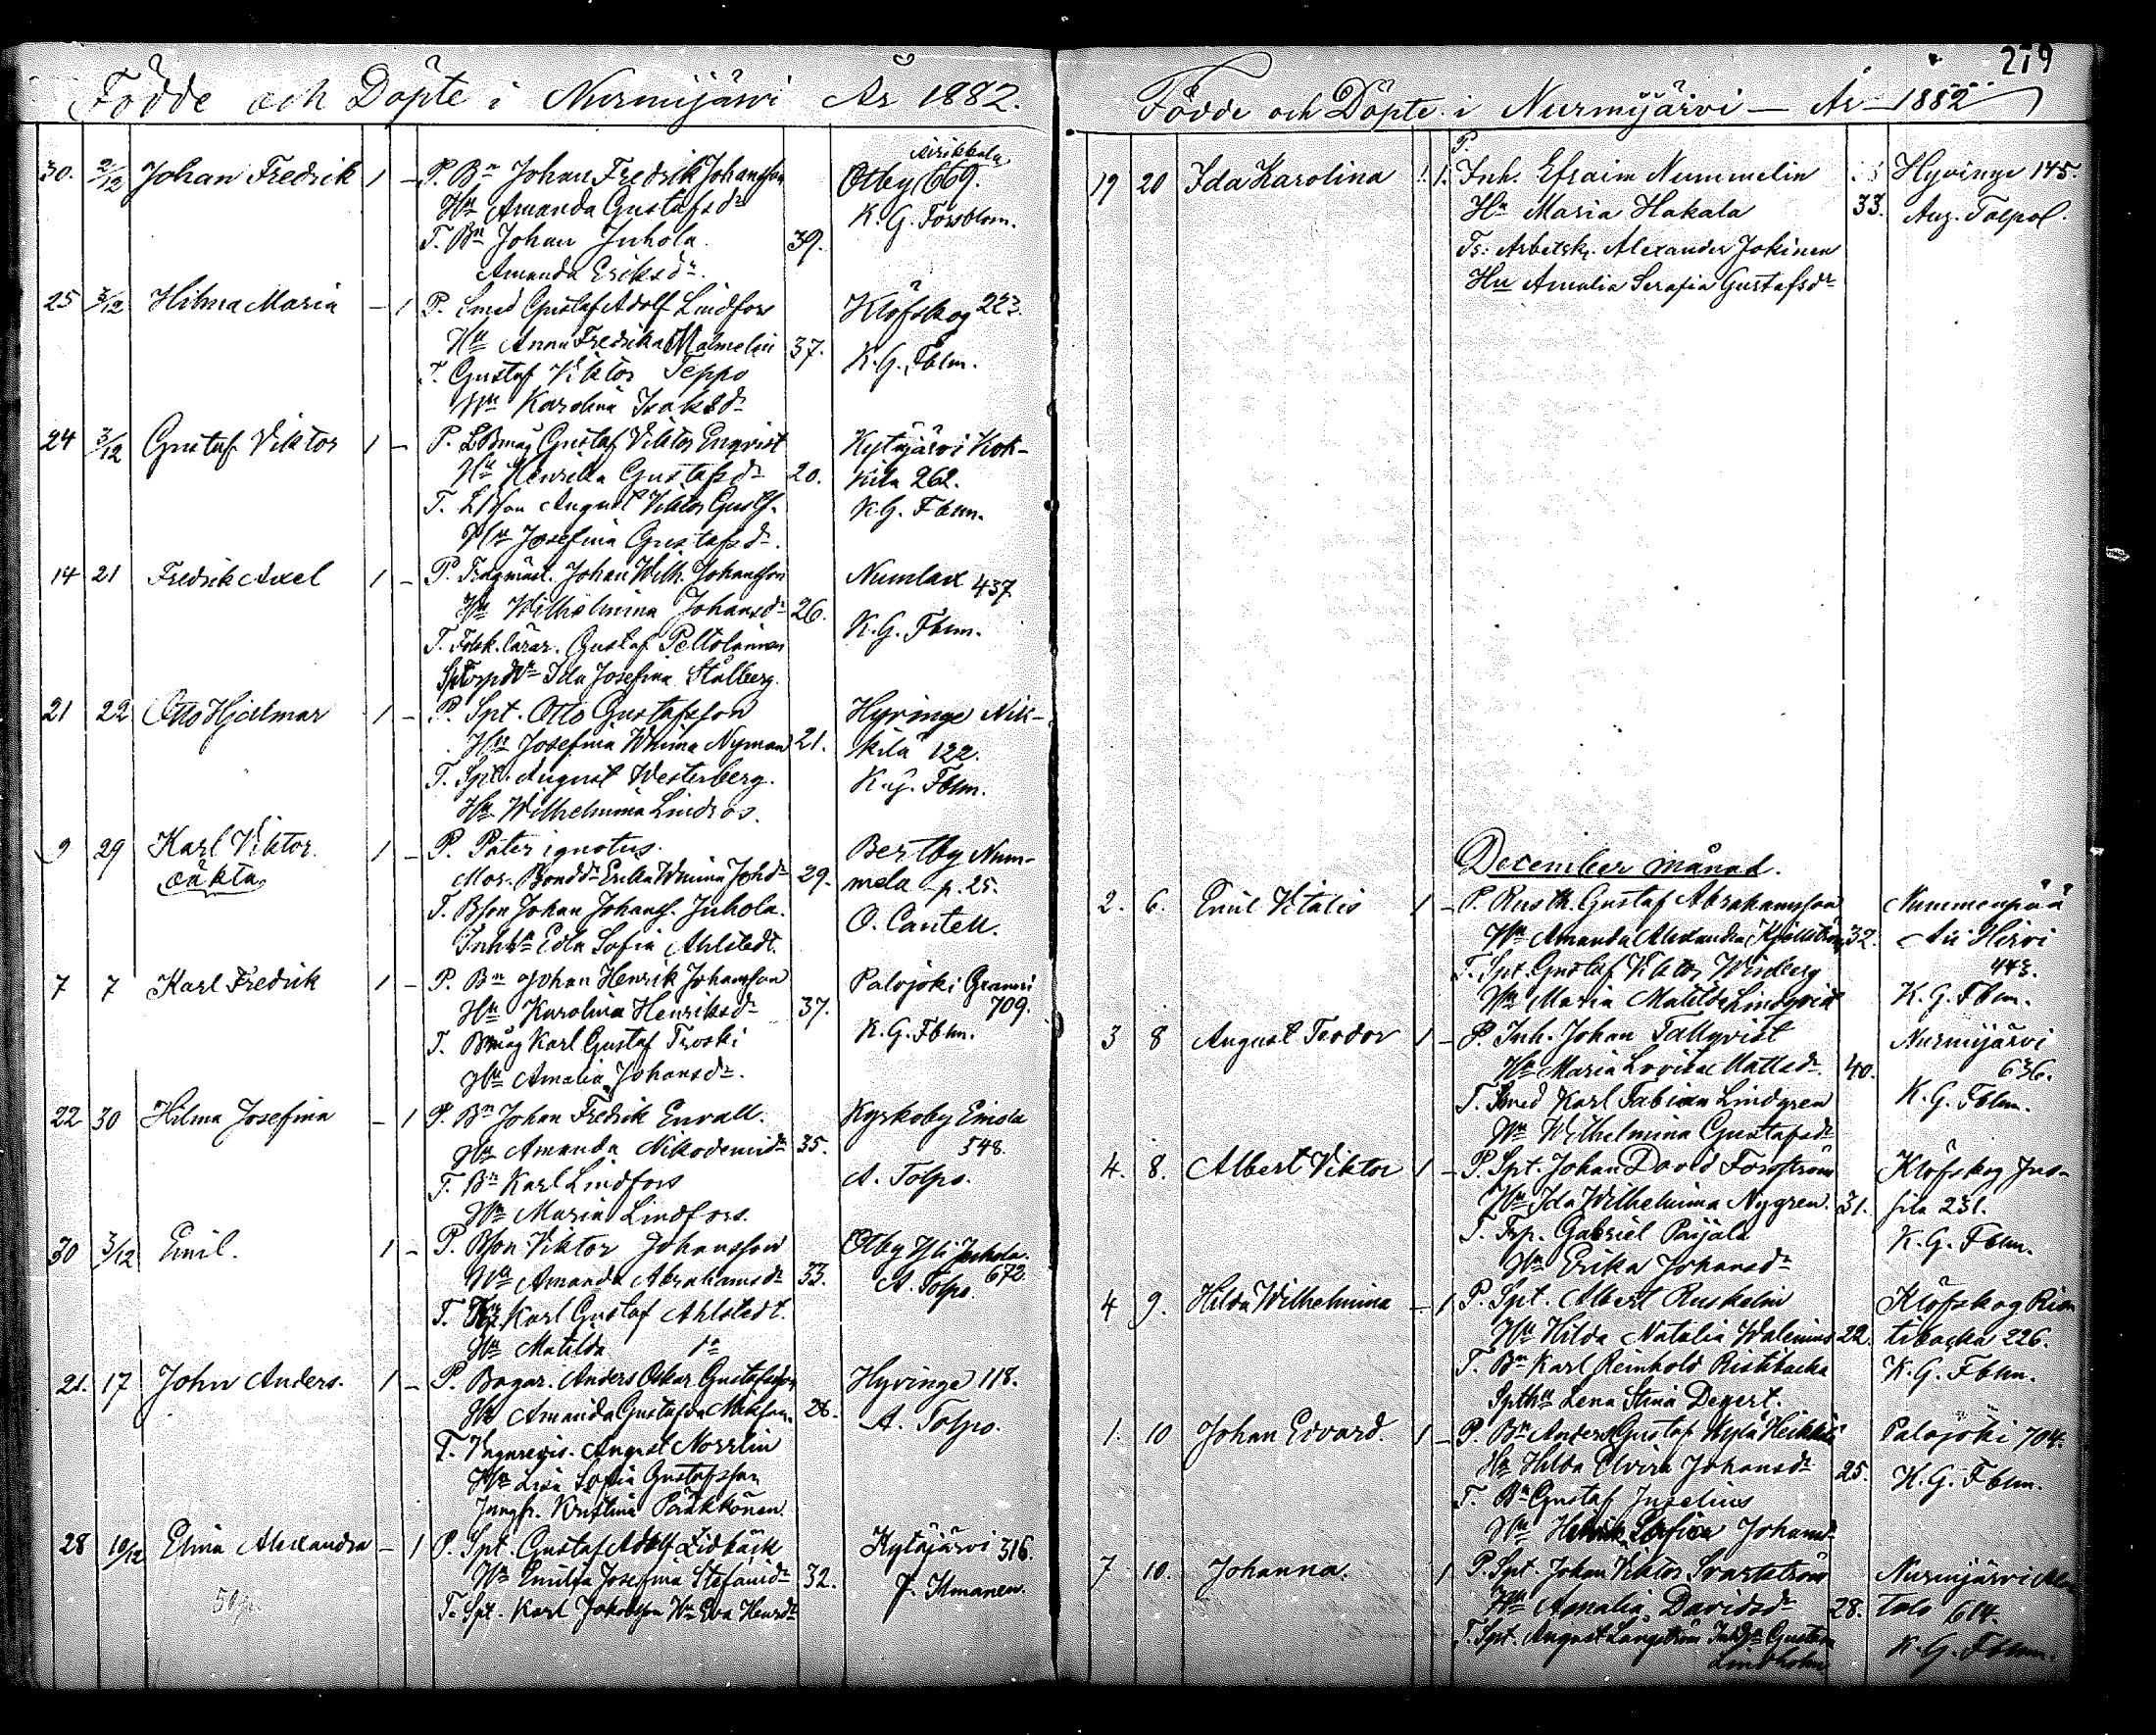 Födde och Döpte i Nurmijärvi År 1882.
30. 2/12 Johan Fredrik 1 – P. Bn Johan Fredrik Johansson Otby 669.
Hu Amanda Gustafsdr K. G. Forsblom.
T. Bn Johan Juhola. 39.
Amanda Eriksdr.
25 3/12 Hilma Maria – 1 P. Smed Gustaf Adolf Lindfors Klöfskog 223.
Hu Anna Fredrika Malmelin 37. K. G. Fblm.
T. Gustaf Viktor Seppo
Hu Karolina Isaksdr
24 3/12 Gustaf Viktor 1 – P. LBmåg Gustaf Viktor Enqvist Kytäjärvi Kok-
Hu Henrika Gustafsdr 20. kila 262.
T. LBson August Viktor Gustfs. K. G. Fblm.
Hu Josefina Gustafsdr.
14 21 Fredrik Axel 1 – P. Johan Wilh. Johansson Numlax 437
Hu Wilhelmina Johansdr 26. K. G. Fblm.
T. Folk. lärar. Gustaf Peltolainen
Ida Josefina Stålberg.
21 22 Otto Hjalmar 1 – P. Spt. Otto Gustafsson Hyvinge Nik-
Hu Josefina Wmina Nyman 21. kilä 122.
T. Spt. August Westerberg. K. G. Fblm.
Hu Wilhelmina Lindros.
9 29 Karl Viktor. 1 – P. Pater ignotus. Bertby Num-
oäkta Mor. Bonddr Erika Wmina Johdr 29. mela p. 25.
T. Bson Johan Johanss. Juhola. O. Cantell.
Inhhu Edla Sofia Ahlstedt.
7 7 Karl Fredrik 1 – P. Bn Johan Henrik Johansson Palojoki Granni
Hu Karolina Henriksdr 37. 709.
T. Bmåg Karl Gustaf Troski K. G. Fblm.
Hu Amalia Johansdr.
22 30 Hilma Josefina – 1 P. Bn Johan Fredrik Envall. Kyrkoby Enisla
Hu Amanda Nikodemidr 35. 548.
T. Bn Karl Lindfors A. Tolpo.
Hu Maria Lindfors.
30 3/12 Emil. 1 – P. Bson Viktor Johansson Otby Yli Juhola.
Hu Amanda Abrahamsdr 33. A. Tolpo. 672
T. Trp. Karl Gustaf Ahlstedt.
Hu Matilda
21. 17 John Anders. 1 – P. Bagar. Anders Oskar Gustafsson Hyvinge 118.
Hu Amanda Gustafva 26. A. Tolpo.
T. August Norrlin
Hu Lisa Sofia Gustafsson
Jungfr. Kristina Pärkkönen.
28 10/12 Elina Alexandra – 1 P. Spt. Gustaf Adolf Lidbäck Kytäjärvi 316.
Hu Emilia Josefina Stefanidr 32. J. Ilmanen.
T. Spt. Karl Jakobsson Hu Eva Henrdr
279
Födde och Döpte i Nurmijärvi – År – 1882
19 20 Ida Karolina 1. P. Inh. Efraim Nummelin Hyvinge 145.
Hu Maria Hakala 33. Aug. Tolpo.
Ts: Arbetsk. Alexander Jokinen
Hu Amalia Serafia Gustafsdr
December månad.
2. 6. Emil Vitalis 1 – P. Rusth. Gustaf Abrahamsson Nummenpää
Hu Amanda Alexandra Kjellström 32. Ali Hirvi
T. Spt. Gustaf Viktor Winberg 443.
Hu Maria Matilda Lindqvist K. G. Fblm.
3 8 August Teodor 1 – P. Inh. Johan Tallqvist Nurmijärvi
Hu Maria Lovisa Mattsdr. 40. 636.
T. Smed Karl Fabian Lindgren K. G. Fblm.
Hu Wilhelmina Gustafsdr
4. 8. Albert Viktor 1 – P. Spt. Johan David Forsström Klöfskog Jus-
Hu Ida Wilhelmina Nygren. 31. sila 231.
T. Trp. Gabriel Paijala K. G. Fblm.
Hu Erika Johansdr
4 9. Hilda Wilhelmina – 1 P. Spt. Albert Ruskelin Klöfskog Ris
Hu Hilda Natalia Walenius 22. tibacka 226.
T. Bn Karl Reinhold Ristibacka K. G. Fblm.
Spthu Lena Stina Degert.
1. 10 Johan Edvard. 1 – P. Bn Anders Gustaf Kylä Heikkilä Palojoki 704.
Hu Hilda Elvira Johansdr 25. K. G. Fblm.
T. Bn Gustaf Juselius
Hu Sofia Johansdr
7 10. Johanna. 1 P. Spt. Johan Viktor Svartström Nurmijärvi
Hu Amalia Davidsdr 28. talo 614.
T. Spt. August Långström Gustava K. G. Fblm.
Lindholm